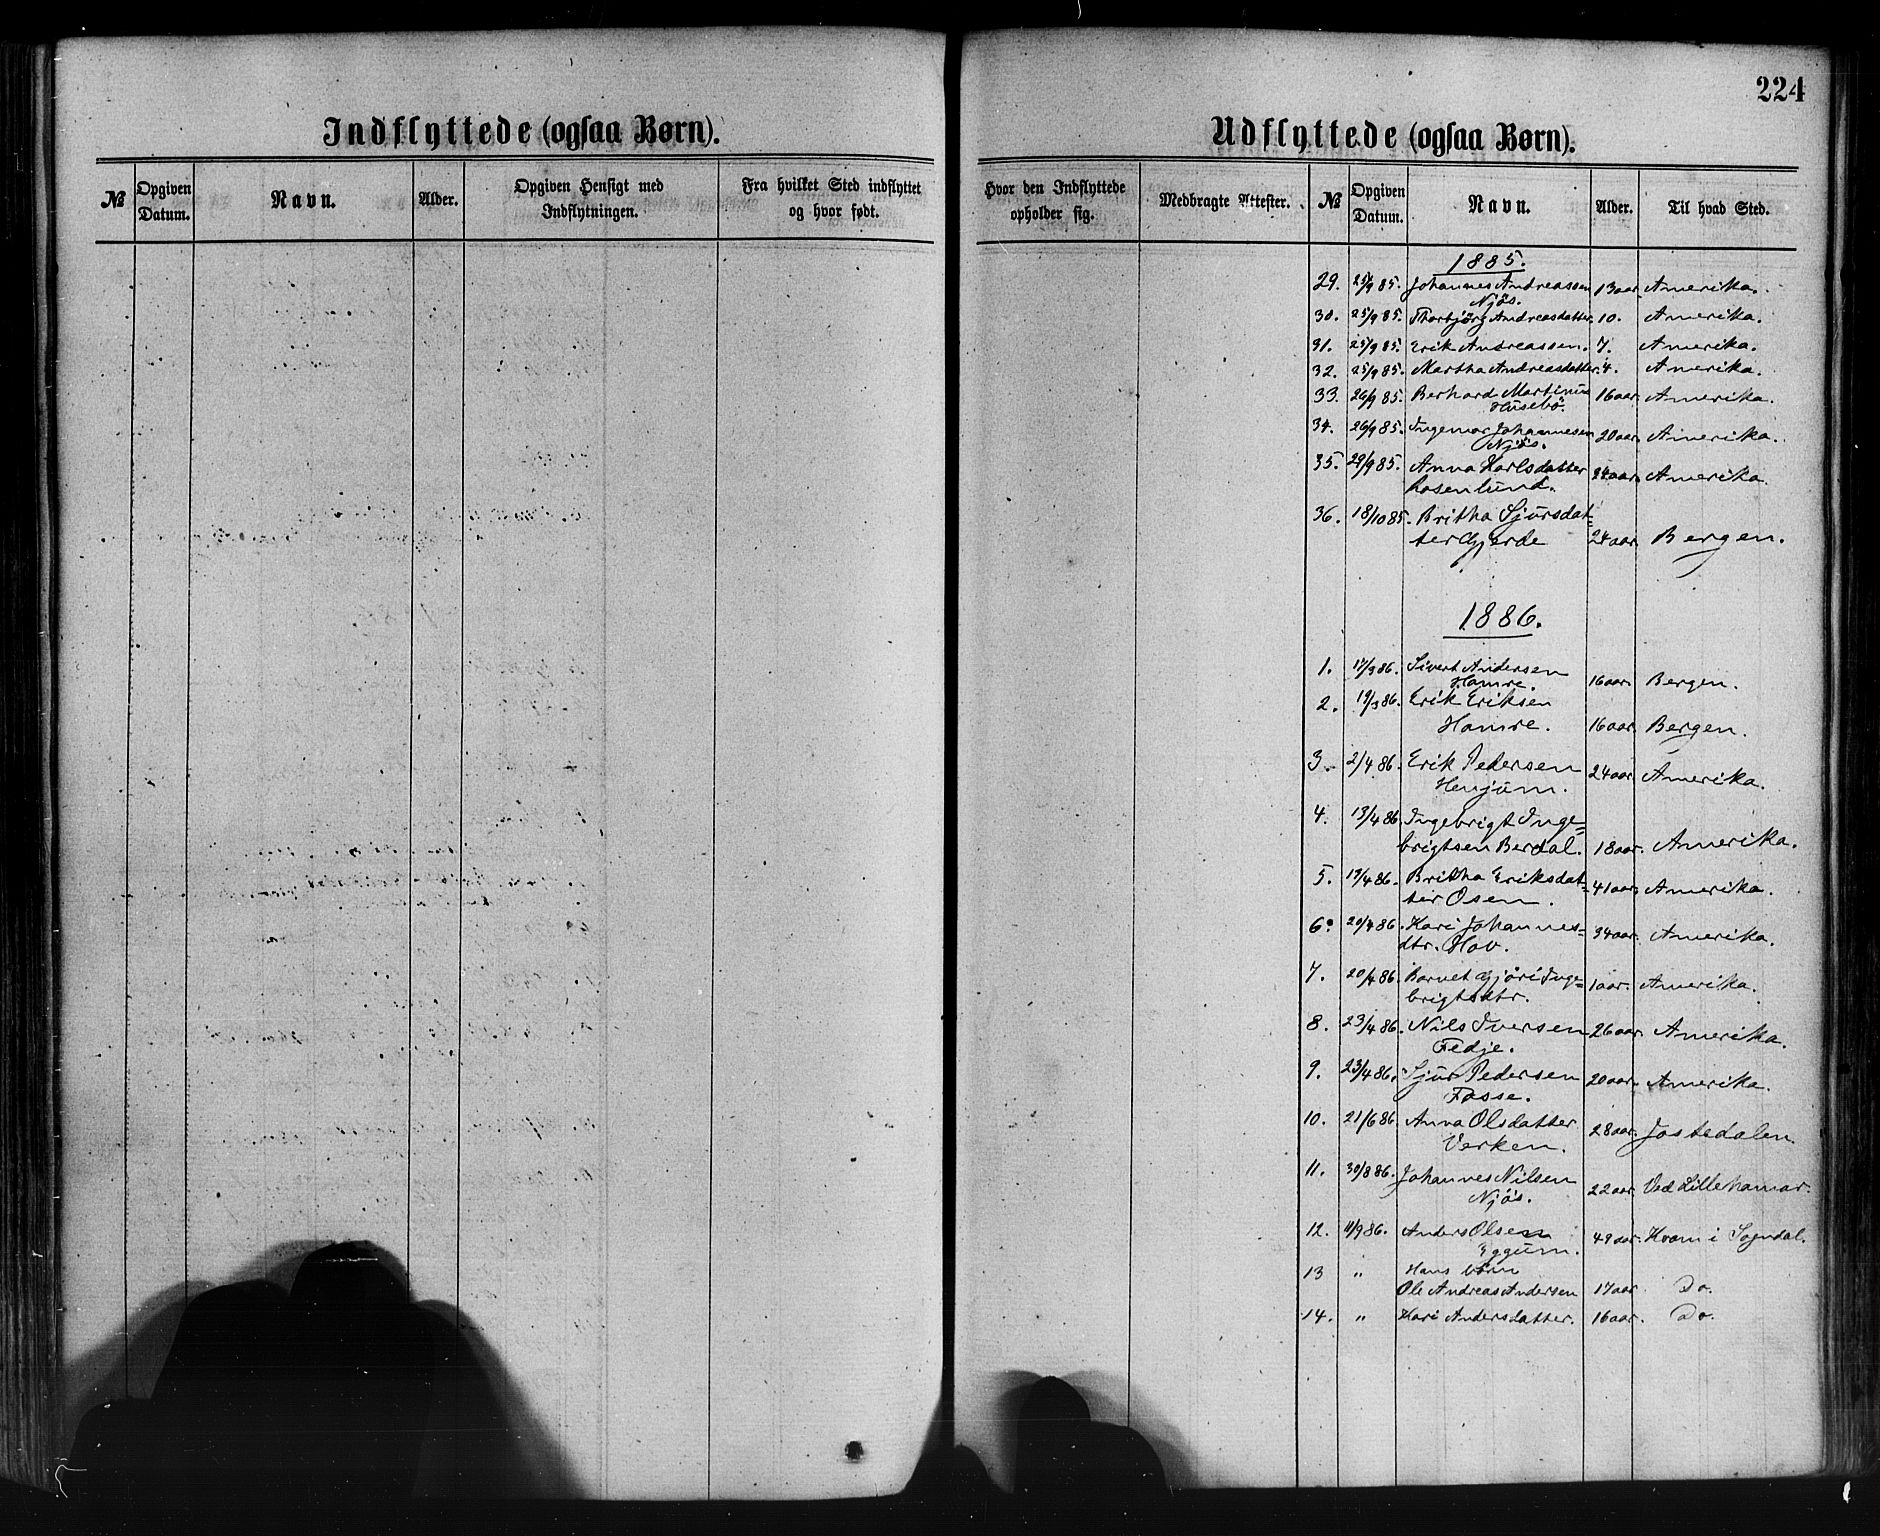 224
Indflyttede (ogsaa Børn).
№ Opgiven Datum. Navn. Alder. Opgiven Hensigt med Indflytningen. Fra hvilket Sted indflyttet og hvor født.
Udflyttede (ogsaa Børn).
Hvor den Indflyttede opholder sig. Medbragte Attester. № Opgiven Datum. Navn. Alder. Til hvad Sted.
1885.
29. 25/9 85. Johannes Andreassen 13 aar. Amerika.
Njøs.
30. 25/9 85. Thorbjörg Andreasdatter. 10. Amerika.
31. 25/9 85. Erik Andreassen. 7. Amerika.
32. 25/9 85. Martha Andreasdatter. 4. Amerika.
33. 26/9 85. Berhard Martinus 16 aar. Amerika.
Husebö.
34. 26/9 85. Ingemar Johannesen 20 aar. Amerika.
Njøs.
35. 29/9 85. Anna Karlsdatter 24 aar. Amerika.
Rosenlund.
36. 18/10 85. Britha Sjursdat=
ter Gjerde 24 aar. Bergen.
1886.
1. 17/3 86. Sivert Andersen
Hamre. 16 aar. Bergen.
2. 19/3 86. Erik Eriksen
Hamre. 16 aar. Bergen.
3. 2/4 86. Erik Pedersen 24 aar. Amerika.
Henjum.
4. 13/4 86. Ingebrigt Inge=
brigtsen Berdal. 18 aar. Amerika.
5. 19/4 86. Britha Eriksdat= 41 aar. Amerika.
ter Osen.
6. 20/4 86. Kari Johannes= 34 aar. Amerika.
dtr. Hov.
7. 20/4 86. Barnet Gjøri Inge= 1 aar. Amerika.
brigtsdtr.
8. 23/4 86. Nils Iversen 26 aar. Amerika.
Fedje.
9. 23/4 86. Sjur Pedersen 20 aar. Amerika.
Fosse.
10. 21/6 86. Anna Olsdatter 28 aar. Jostedalen
Verken.
11. 30/8 86. Johannes Nilsen 22 aar. Ved Lillehamar.
Njøs.
12. 11/9 86. Anders Olsen 49 aar. Kvam i Sogndal.
Eggum.
13 " Hans börn
Ole Andreas Andersen 17 aar. Do.
14. " Kari Andersdatter. 16 aar. Do.